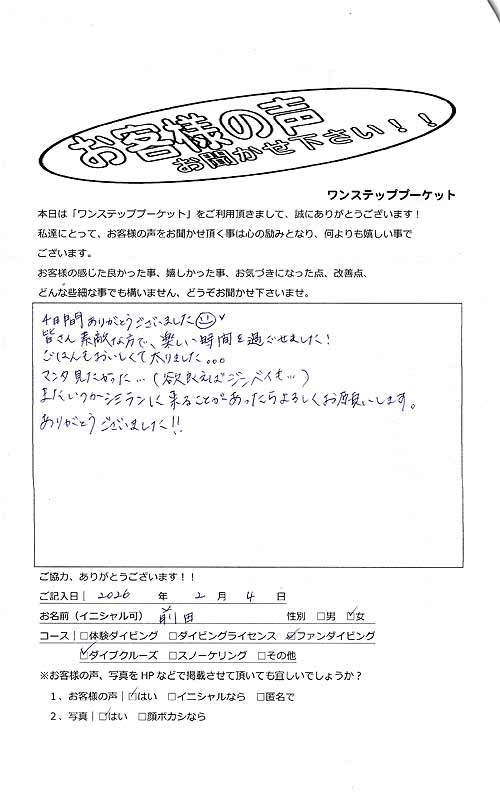 お客様の声
お聞かせ下さい！！
ワンステッププーケット
本日は「ワンステッププーケット」をご利用頂きまして、誠にありがとうございます！
私達にとって、お客様の声をお聞かせ頂く事は心の励みとなり、何よりも嬉しい事で
ございます。
お客様の感じた良かった事、嬉しかった事、お気づきになった点、改善点、
どんな些細な事でも構いません、どうぞお聞かせ下さいませ。
4日間ありがとうございました
皆さん素敵な方で、楽しい時間を過ごせました！
ごはんもおいしくて太りました。。。
マンタ見たかった…（欲を言えばジンベイも…）
またいつかシミランに来ることがあったらよろしくお願いします。
ありがとうございました!!
ご協力、ありがとうございます！！
ご記入日｜ 2026 年 2 月 4 日
お名前（イニシャル可） 前田 性別 □男 ☑女
コース｜□体験ダイビング □ダイビングライセンス ☑ファンダイビング
☑ダイブクルーズ □スノーケリング □その他
※お客様の声、写真をHPなどで掲載させて頂いても宜しいでしょうか？
１、お客様の声｜☑はい □イニシャルなら □匿名で
２、写真｜☑はい □顔ボカシなら